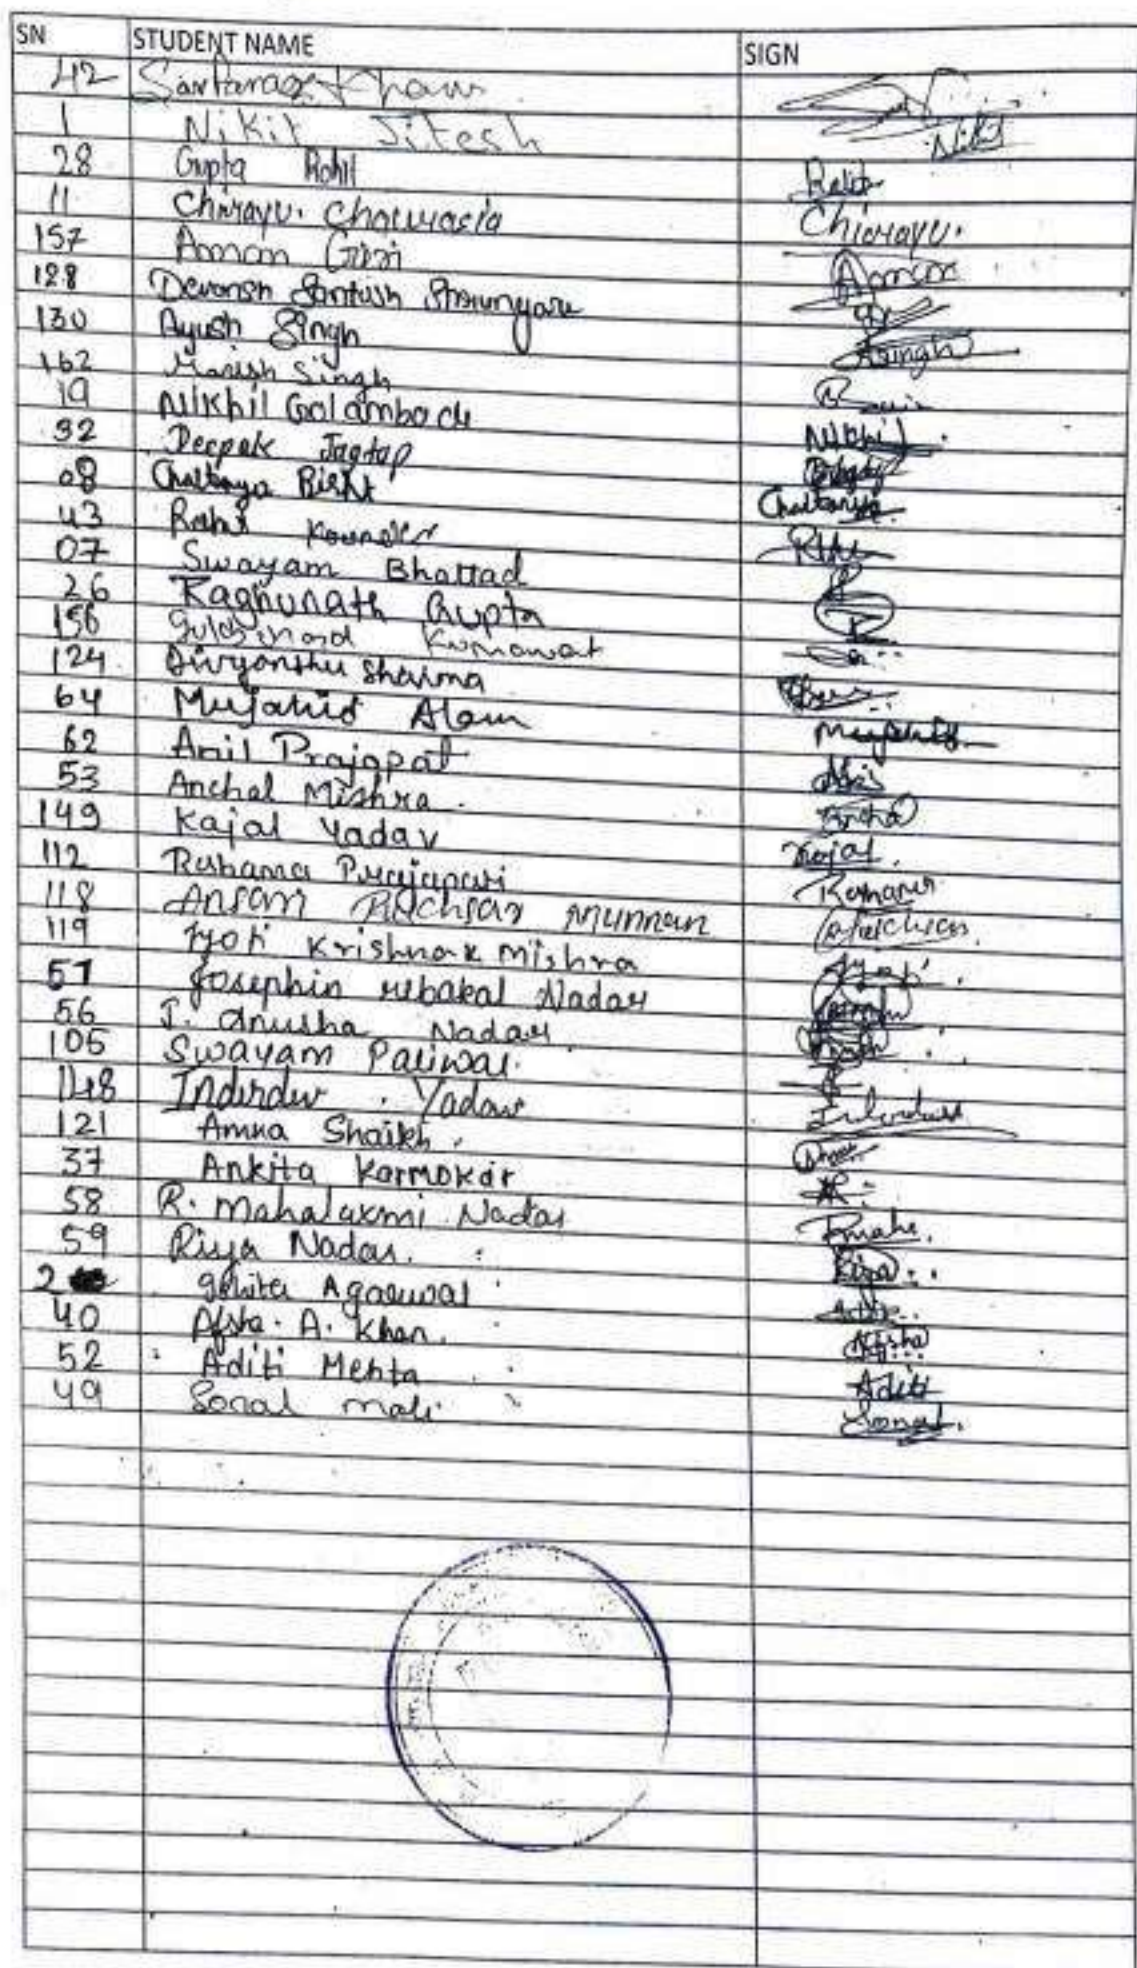 SN STUDENT NAME SIGN
42 Sarfaraz Khan
1 Nikit Jitesh Nikit
28 Gupta Rohit Rohit
11 Chirayu. Chaurasia Chirayu.
157 Aman Giri Aman
128 Devansh Santosh
130 Ayush Singh Asingh
162 Manish Singh
19 Nikhil Golambade Nikhil
32 Deepak Jagtap
08 Chaitanya Bisht Chaitanya
43 Rohit Kounder
07 Swayam Bhattad
26 Raghunath Gupta
156 Gulshand Kumawat
124 Divyanshu Sharma
64 Mujahid Alam Mujahid
62 Anil Prajapat
53 Anchal Mishra.
149 Kajal Yadav Kajal.
112 Prajapati
118 Ansari Munnan
119 Jyoti Krishna Mishra
57 Josephin rebakal Nadar
56 J. Anusha Nadar
105 Swayam Paliwal.
148 Inderdev Yadav
121 Amna Shaikh.
37 Ankita Karmokar
58 R. Mahalaxmi Nadar Rmaha.
59 Riya Nadar. Riya
2 Ishita Agarwal
40 Afsha. A. Khan. Afsha
52 Aditi Mehta Aditi
49 Sonal mali Sonal.